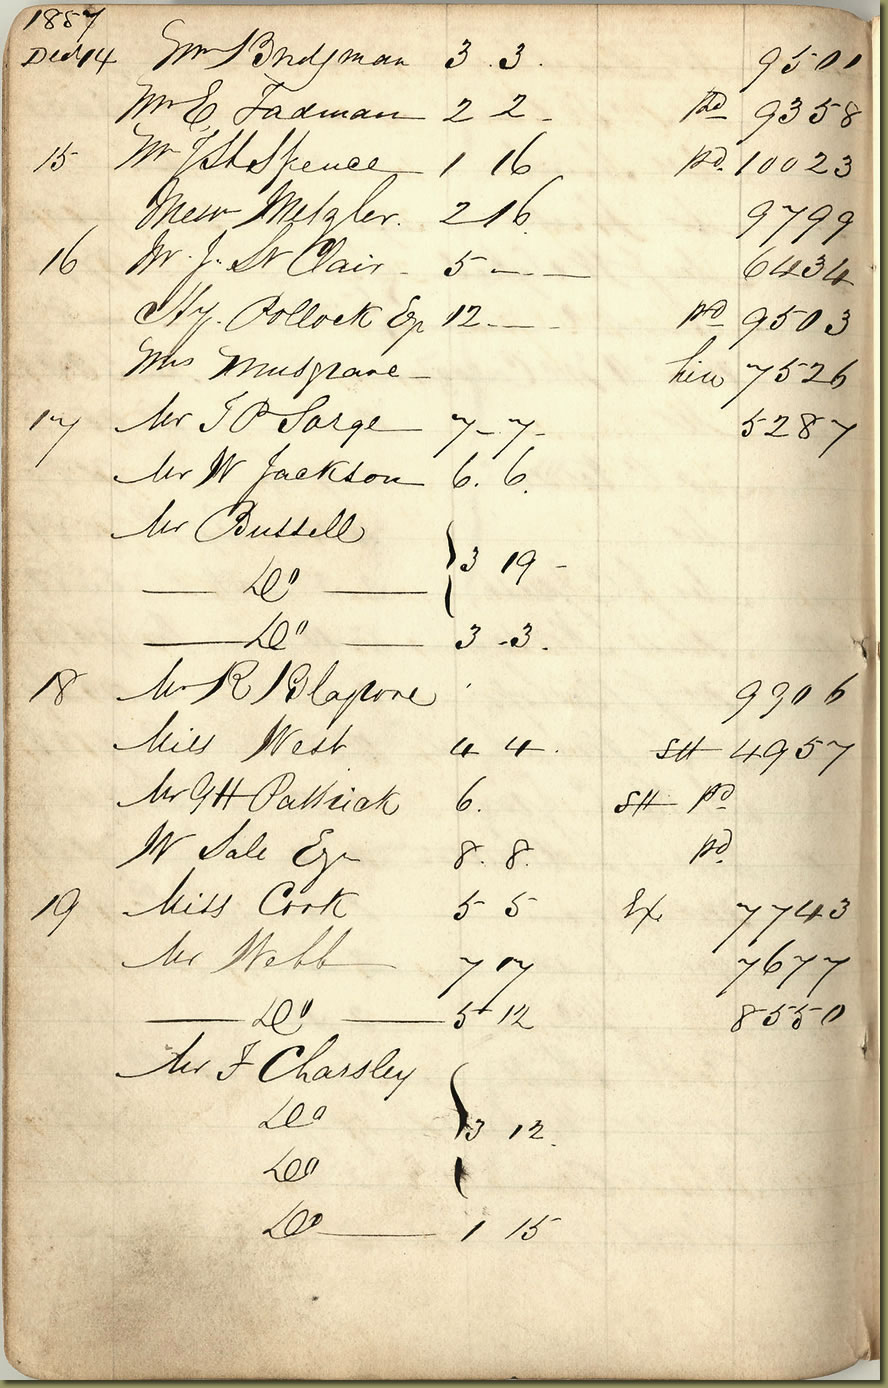 1857
Dec 14 Mr Bridgman 3 . 3 . 9501
Mr E Tadman 2 2 - pd 9358
15 Mr Spence 1 16 pd. 10023
Messr Metzler. 2 16 9799
16 Mr. J. St Clair - 5 - - 6434
Hy. Pollock Esq 12 - - pd 9503
Mrs Musgrave - hire 7526
17 Mr T P Sarge 7 - 7 - 5287
Mr W Jackson 6. 6.
Mr Bussell
Do } 3 19 -
Do 3 - 3 .
18 Mr R Blagrove 9306
Miss West 4 4 . SH 4957
Mr G H Patrick 6. SH pd
W Sale Esqr 8. 8. pd.
19 Miss Cook 5 5 Ex 7743
Mr Webb 7 7 7677
Do 5 12 8550
Mr F Charsley
Do } 3 12.
Do
Do 1 15